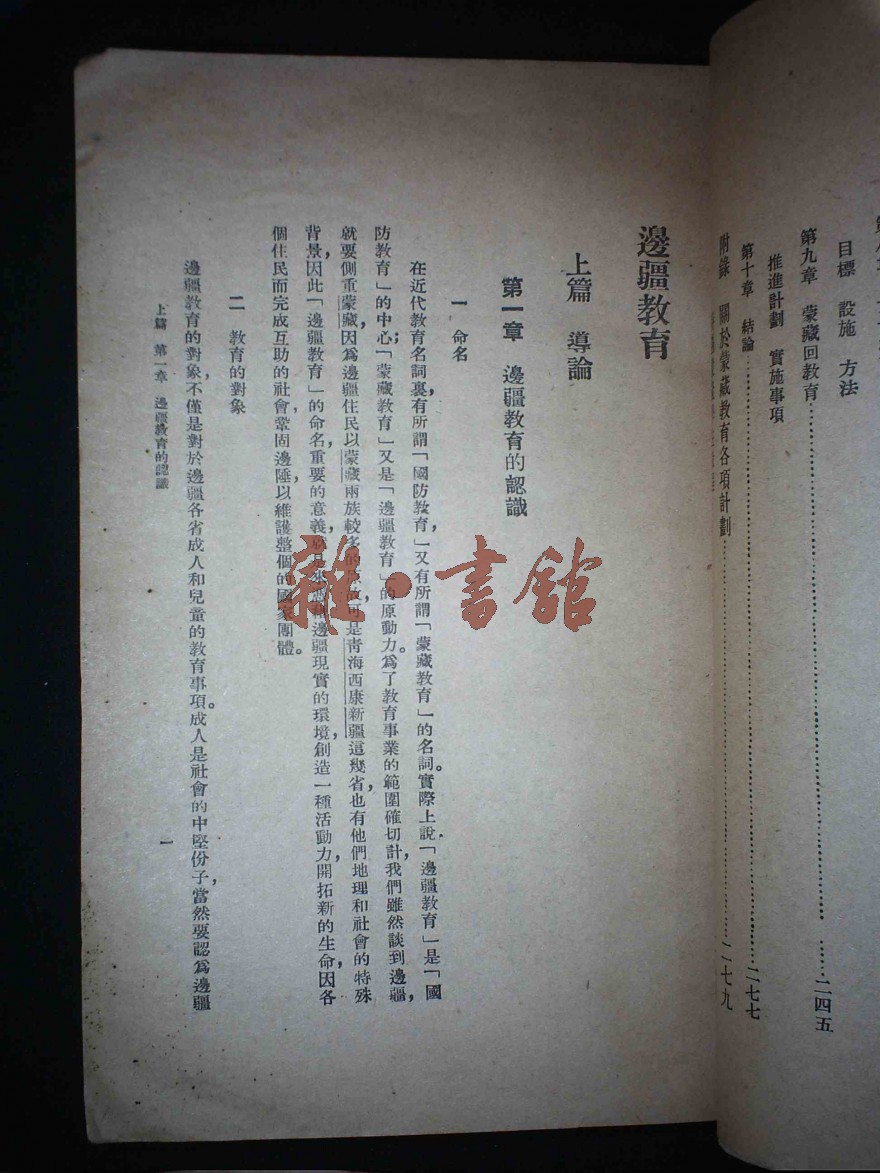 目標 設施 方法
第九章 蒙藏回教育……二四五
推進計劃 實施事項
第十章 結論……二七七
附錄 關於蒙藏教育各項計劃……二七九
邊疆教育
上篇 導論
第一章 邊疆教育的認識
一 命名
在近代教育名詞裏,有所謂「國防教育」,又有所謂「蒙藏教育」的名詞。實際上說,「邊疆教育」是「國
防教育」的中心;「蒙藏教育」又是「邊疆教育」的原動力。爲了教育事業的範圍確切計,我們雖然談到邊疆,
就要側重蒙藏,因爲邊疆住民以蒙藏兩族較多的原故,可是青海西康新疆這幾省,也有他們地理和社會的特殊
背景,因此「邊疆教育」的命名,重要的意義,就是邊疆現實的環境,創造一種活動力,開拓新的生命,因各
個住民而完成互助的社會,鞏固邊陲,以維護整個的國家團體。
二 教育的對象
邊疆教育的對象,不僅是對於邊疆各省成人和兒童的教育事項。成人是社會的中堅份子,當然要認爲邊疆
上篇 第一章 邊疆教育的認識
一
雜·書館